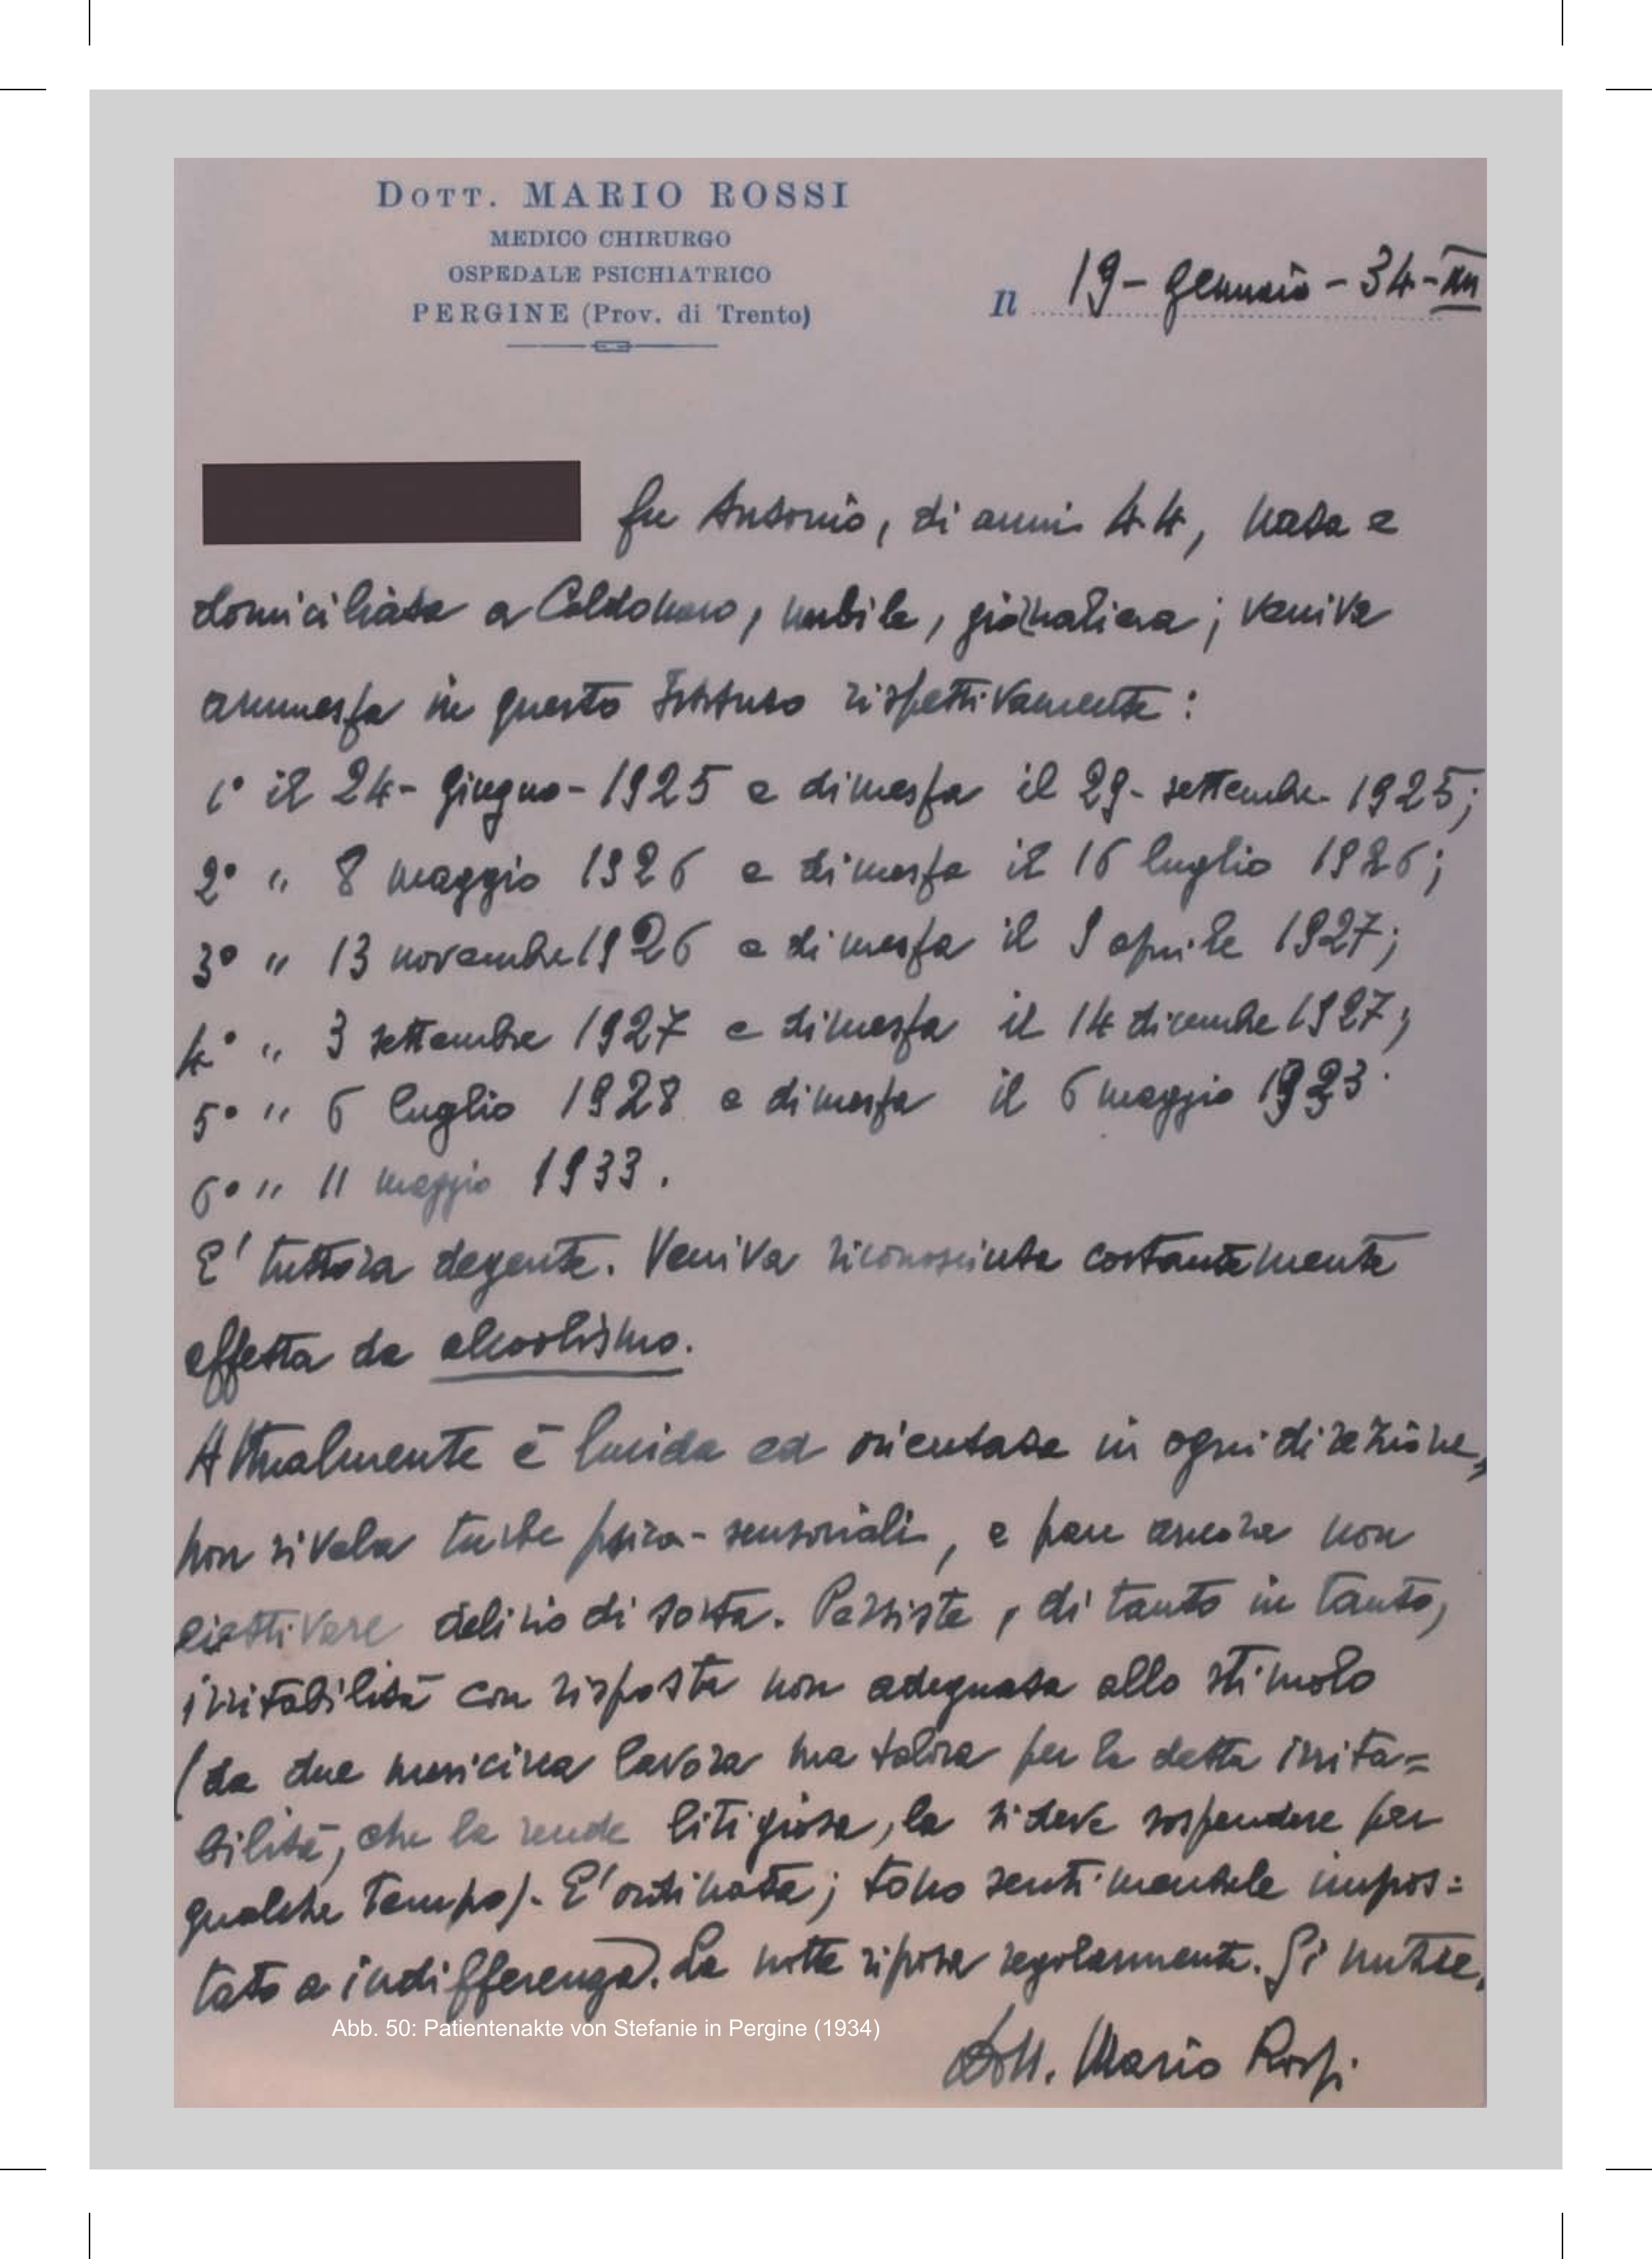 Dott. MARIO ROSSI
MEDICO CHIRURGO
OSPEDALE PSICHIATRICO
PERGINE (Prov. di Trento)
Il 19 - gennaio - 34 - XII
fu Antonio, di anni 44, nata e
domiciliata a Caldonazzo, nubile, giornaliera; veniva
ammessa in questo Istituto rispettivamente:
1° il 24 - giugno - 1925 e dimessa il 29 - settembre - 1925;
2° " 8 maggio 1926 e dimessa il 16 luglio 1926;
3° " 13 novembre 1926 e dimessa il 9 aprile 1927;
4° " 3 settembre 1927 e dimessa il 14 dicembre 1927;
5° " 6 luglio 1928 e dimessa il 6 maggio
6° " 11 maggio 1933.
E' tuttora degente. Veniva riconosciuta costantemente
affetta da alcoolismo.
Attualmente è lucida ed orientata in ogni direzione,
non rivela turbe psico-sensoriali, e pare ancora non
delirio di sorta. Persiste, di tanto in tanto,
irritabilità con risposta non adeguata allo stimolo
(da due lavora ma talora per la detta irrita=
bilità, che la rende litigiosa, la si deve sospendere per
qualche tempo). E' ordinata; tono sentimentale impos=
tato a indifferenza. La notte riposa regolarmente. Si nutre.
Abb. 50: Patientenakte von Stefanie in Pergine (1934)
Dott. Mario Rossi.